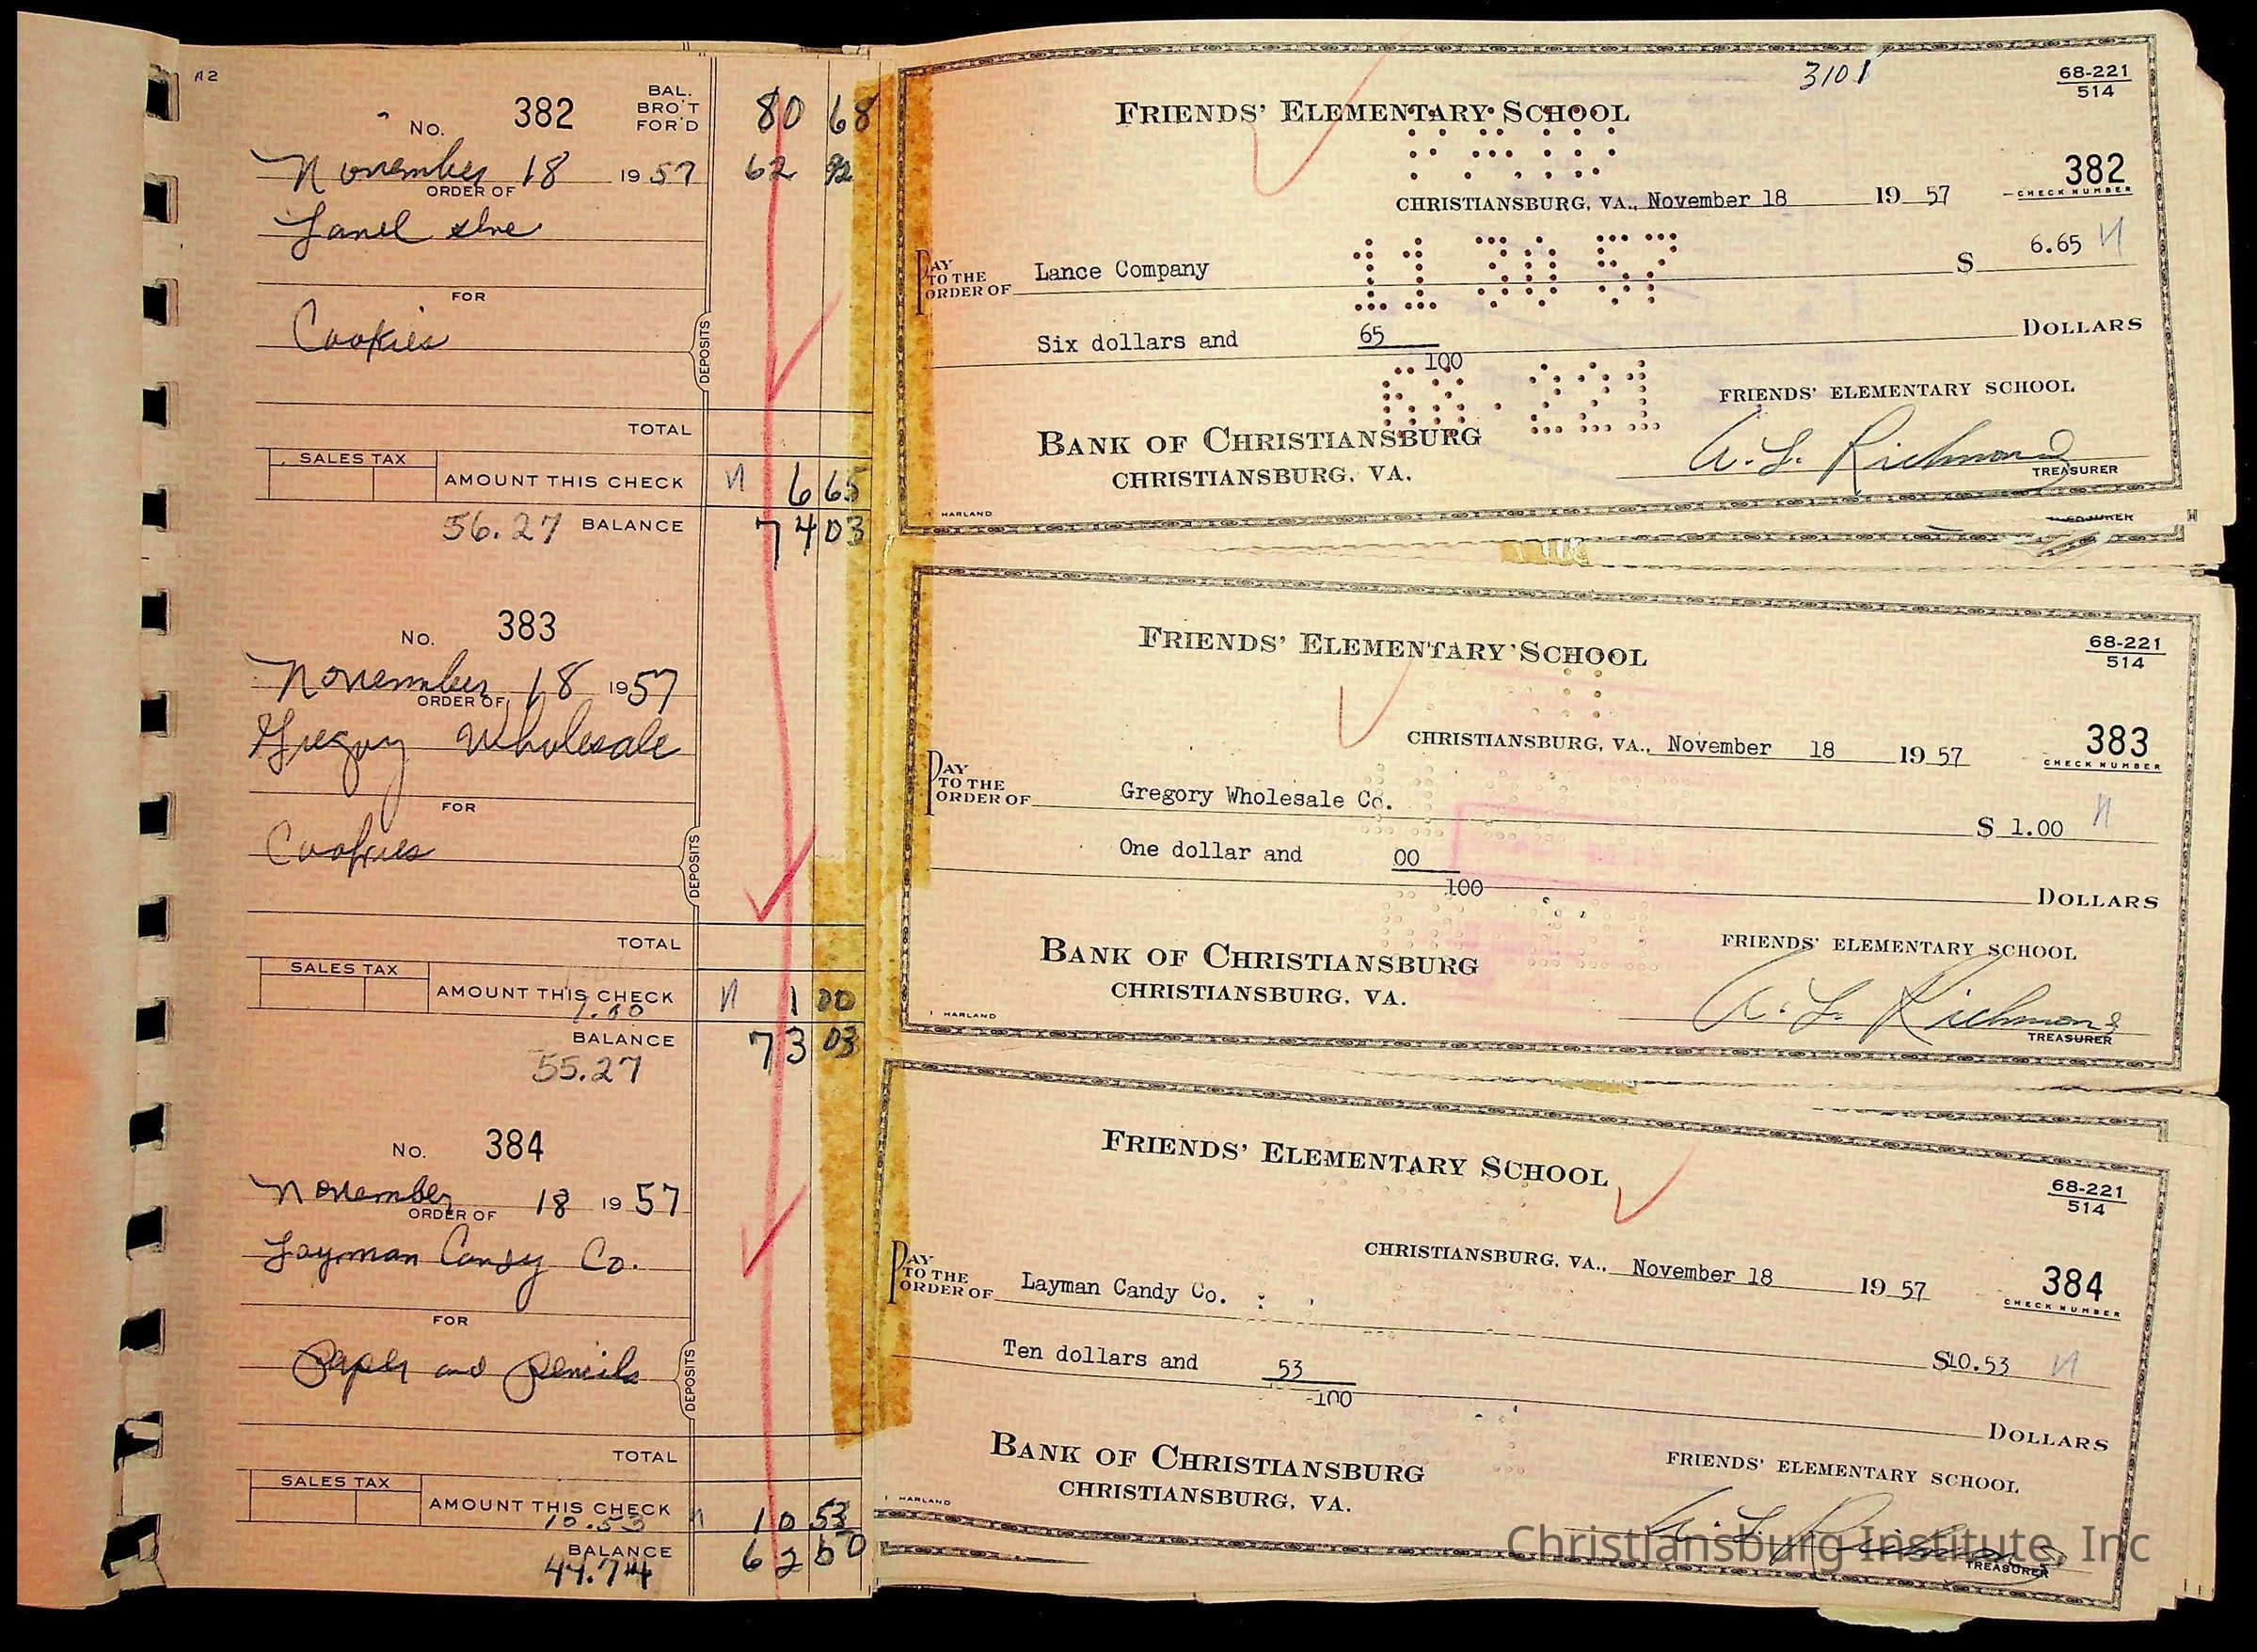 No. 382 BAL. BRO'T FOR'D 80 68
November 18 1957 62 92
ORDER OF
FOR
Cookies
DEPOSITS
TOTAL
SALES TAX AMOUNT THIS CHECK N 6 65
56.27 BALANCE 74 03
No. 383
November 18 1957
ORDER OF
Gregory Wholesale
FOR
Cookies
DEPOSITS
TOTAL
SALES TAX AMOUNT THIS CHECK N 1 00
1.00
BALANCE 73 03
55.27
No. 384
November 18 1957
ORDER OF
Layman Candy Co.
FOR
Paper and pencils
DEPOSITS
TOTAL
SALES TAX AMOUNT THIS CHECK N 10 53
10.53
BALANCE 62 50
44.74
3101
68-221
514
FRIENDS' ELEMENTARY SCHOOL
PAID
382
CHECK NUMBER
CHRISTIANSBURG, VA., November 18 19 57
11 30 57
PAY TO THE ORDER OF Lance Company $ 6.65 N
Six dollars and 65/100 DOLLARS
68-221
FRIENDS' ELEMENTARY SCHOOL
BANK OF CHRISTIANSBURG
CHRISTIANSBURG, VA.
A. L. Richmond
TREASURER
HARLAND
68-221
514
FRIENDS' ELEMENTARY SCHOOL
383
CHECK NUMBER
CHRISTIANSBURG, VA., November 18 19 57
PAY TO THE ORDER OF Gregory Wholesale Co. $ 1.00 N
One dollar and 00/100 DOLLARS
FRIENDS' ELEMENTARY SCHOOL
BANK OF CHRISTIANSBURG
CHRISTIANSBURG, VA.
A. L. Richmond
TREASURER
HARLAND
68-221
514
FRIENDS' ELEMENTARY SCHOOL
384
CHECK NUMBER
CHRISTIANSBURG, VA., November 18 19 57
PAY TO THE ORDER OF Layman Candy Co. $10.53 N
Ten dollars and 53/100 DOLLARS
FRIENDS' ELEMENTARY SCHOOL
BANK OF CHRISTIANSBURG
CHRISTIANSBURG, VA.
A. L. Richmond
TREASURER
HARLAND
Christiansburg Institute, Inc